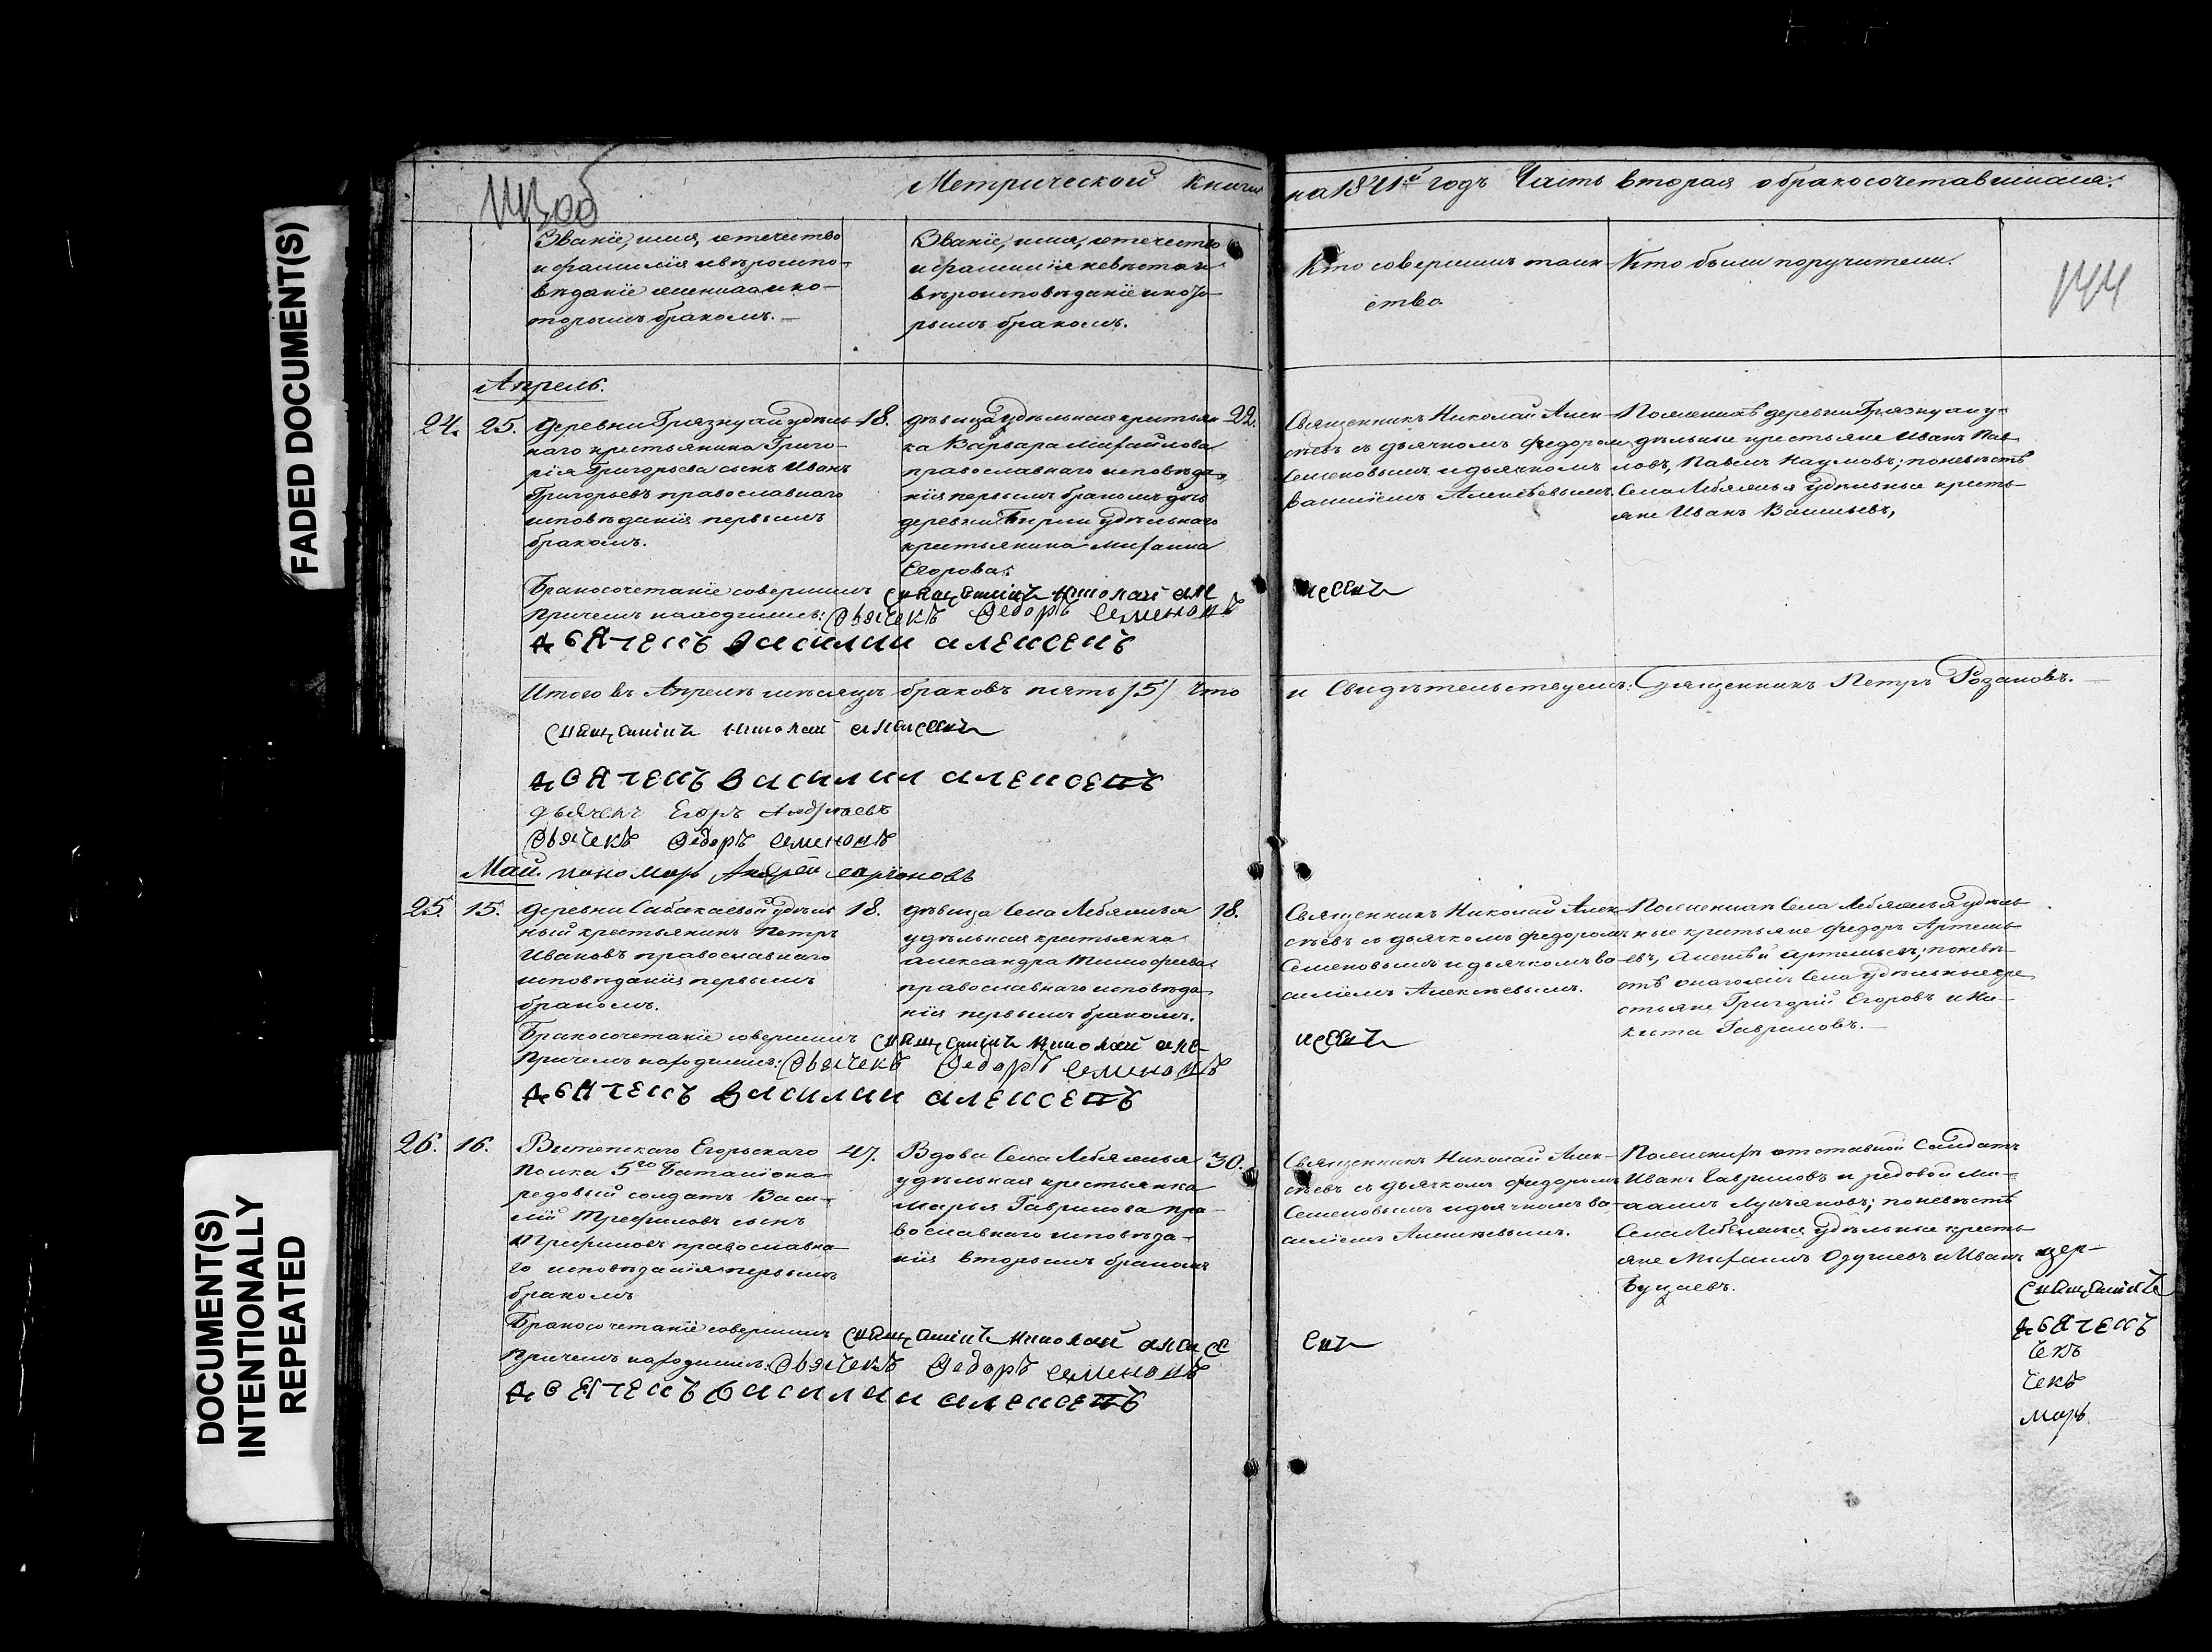 FADED DOCUMENT(S)
DOCUMENT(S)
INTENTIONALLY
REPEATED
Метрической книги
на 1841й годъ Часть вторая о бракосочетавшихся.
144
Званiе, имя, отечество
и фамилiя и вѣроиспо-
вѣданiе жениха и ко-
торымъ бракомъ.
Званiе, имя, отечество
и фамилiя невѣсты и
вѣроисповѣданiе и кото-
рымъ бракомъ.
Кто совершилъ таин-
ство.
Кто были поручители.
Апрель.
24. 25.
деревни Грязнухи удѣль-
наго крестьянина Григо-
рiя Григорьева сынъ Иванъ
Григорьевъ православнаго
исповѣданiя первымъ
бракомъ.
18.
дѣвица удѣльная крестьян-
ка Варвара Михайлова
православнаго исповѣда-
нiя первымъ бракомъ дочь
деревни удѣльнаго
крестьянина Михаила
Егорова.
22.
Священникъ Николай Алек-
сѣевъ съ дьячкомъ Федоромъ
Семеновымъ и дьячкомъ
Василiемъ Алексѣевымъ.
По женихѣ деревни Грязнухи у-
дѣльные крестьяне Иванъ Пав-
ловъ, Павелъ Наумовъ; по невѣстѣ
Села Лебяжья удѣльные кресть-
яне Иванъ Васильевъ,
Бракосочетанiе совершилъ священникъ Николай Але
ксеевъ
Причемъ находились: Дьячекъ Федоръ Семеновъ
дьячекъ Василии алексеевъ
Итого въ Апрелѣ мѣсяцѣ браковъ пять /5/ что
и Свидѣтельствуемъ: Священникъ Петръ Розановъ.
священникъ Николай алексеевъ
дьячекъ Василии алексеевъ
дьячекъ Егоръ Андреевъ
Дьячекъ Федоръ Семеновъ
Май. пономарь Андрей Ларiоновъ
25. 15.
деревни Сабакаевой удѣль-
ный крестьянинъ Петръ
Ивановъ православнаго
исповѣданiя первымъ
бракомъ.
18.
дѣвица Села Лебяжья
удѣльная крестьянка
Александра Тимофеева
православнаго исповѣда-
нiя первымъ бракомъ.
18.
Священникъ Николай Алек-
сѣевъ со дьячкомъ Федоромъ
Семеновымъ и дьячкомъ Ва-
силiемъ Алексѣевымъ.
По женихѣ Села Лебяжья удѣль-
ные крестьяне Федоръ Артемь-
евъ, Алексѣй Артемьевъ; по невѣ-
стѣ Села удѣльные кре-
стьяне Григорiй Егоровъ и Ни-
кита Гавриловъ.
Бракосочетанiе совершилъ священникъ Николай але-
ксеевъ
Причемъ находились: Дьячекъ Федоръ Семеновъ
дьячекъ Василии алексеевъ
26. 16.
Витепскаго Егорьскаго
Полка 5го Баталiона
редовый солдатъ Васи-
лiй Трефиловъ сынъ
Трефиловъ православна-
го исповѣданiя первымъ
бракомъ
47.
Вдова Села Лебяжья
удѣльная крестьянка
Марья Гаврилова пра-
вославнаго исповѣда-
нiя вторымъ бракомъ
30.
Священникъ Николай Алек-
сѣевъ съ дьячкомъ Федоромъ
Семеновымъ и дьячкомъ Ва-
силiемъ Алексѣевымъ.
По женихѣ отставной Солдатъ
Иванъ Гавриловъ и редовой
Лукьяновъ; по невѣстѣ
Села Лебяжья удѣльные кресть-
яне Михаилъ и Иванъ
Бракосочетанiе совершилъ священникъ Николай алексе
евъ
Причемъ находились: Дьячекъ Федоръ Семеновъ
дьячекъ Василии алексеевъ
цер-
священникъ
дьячекъ
чекъ
чекъ
марь